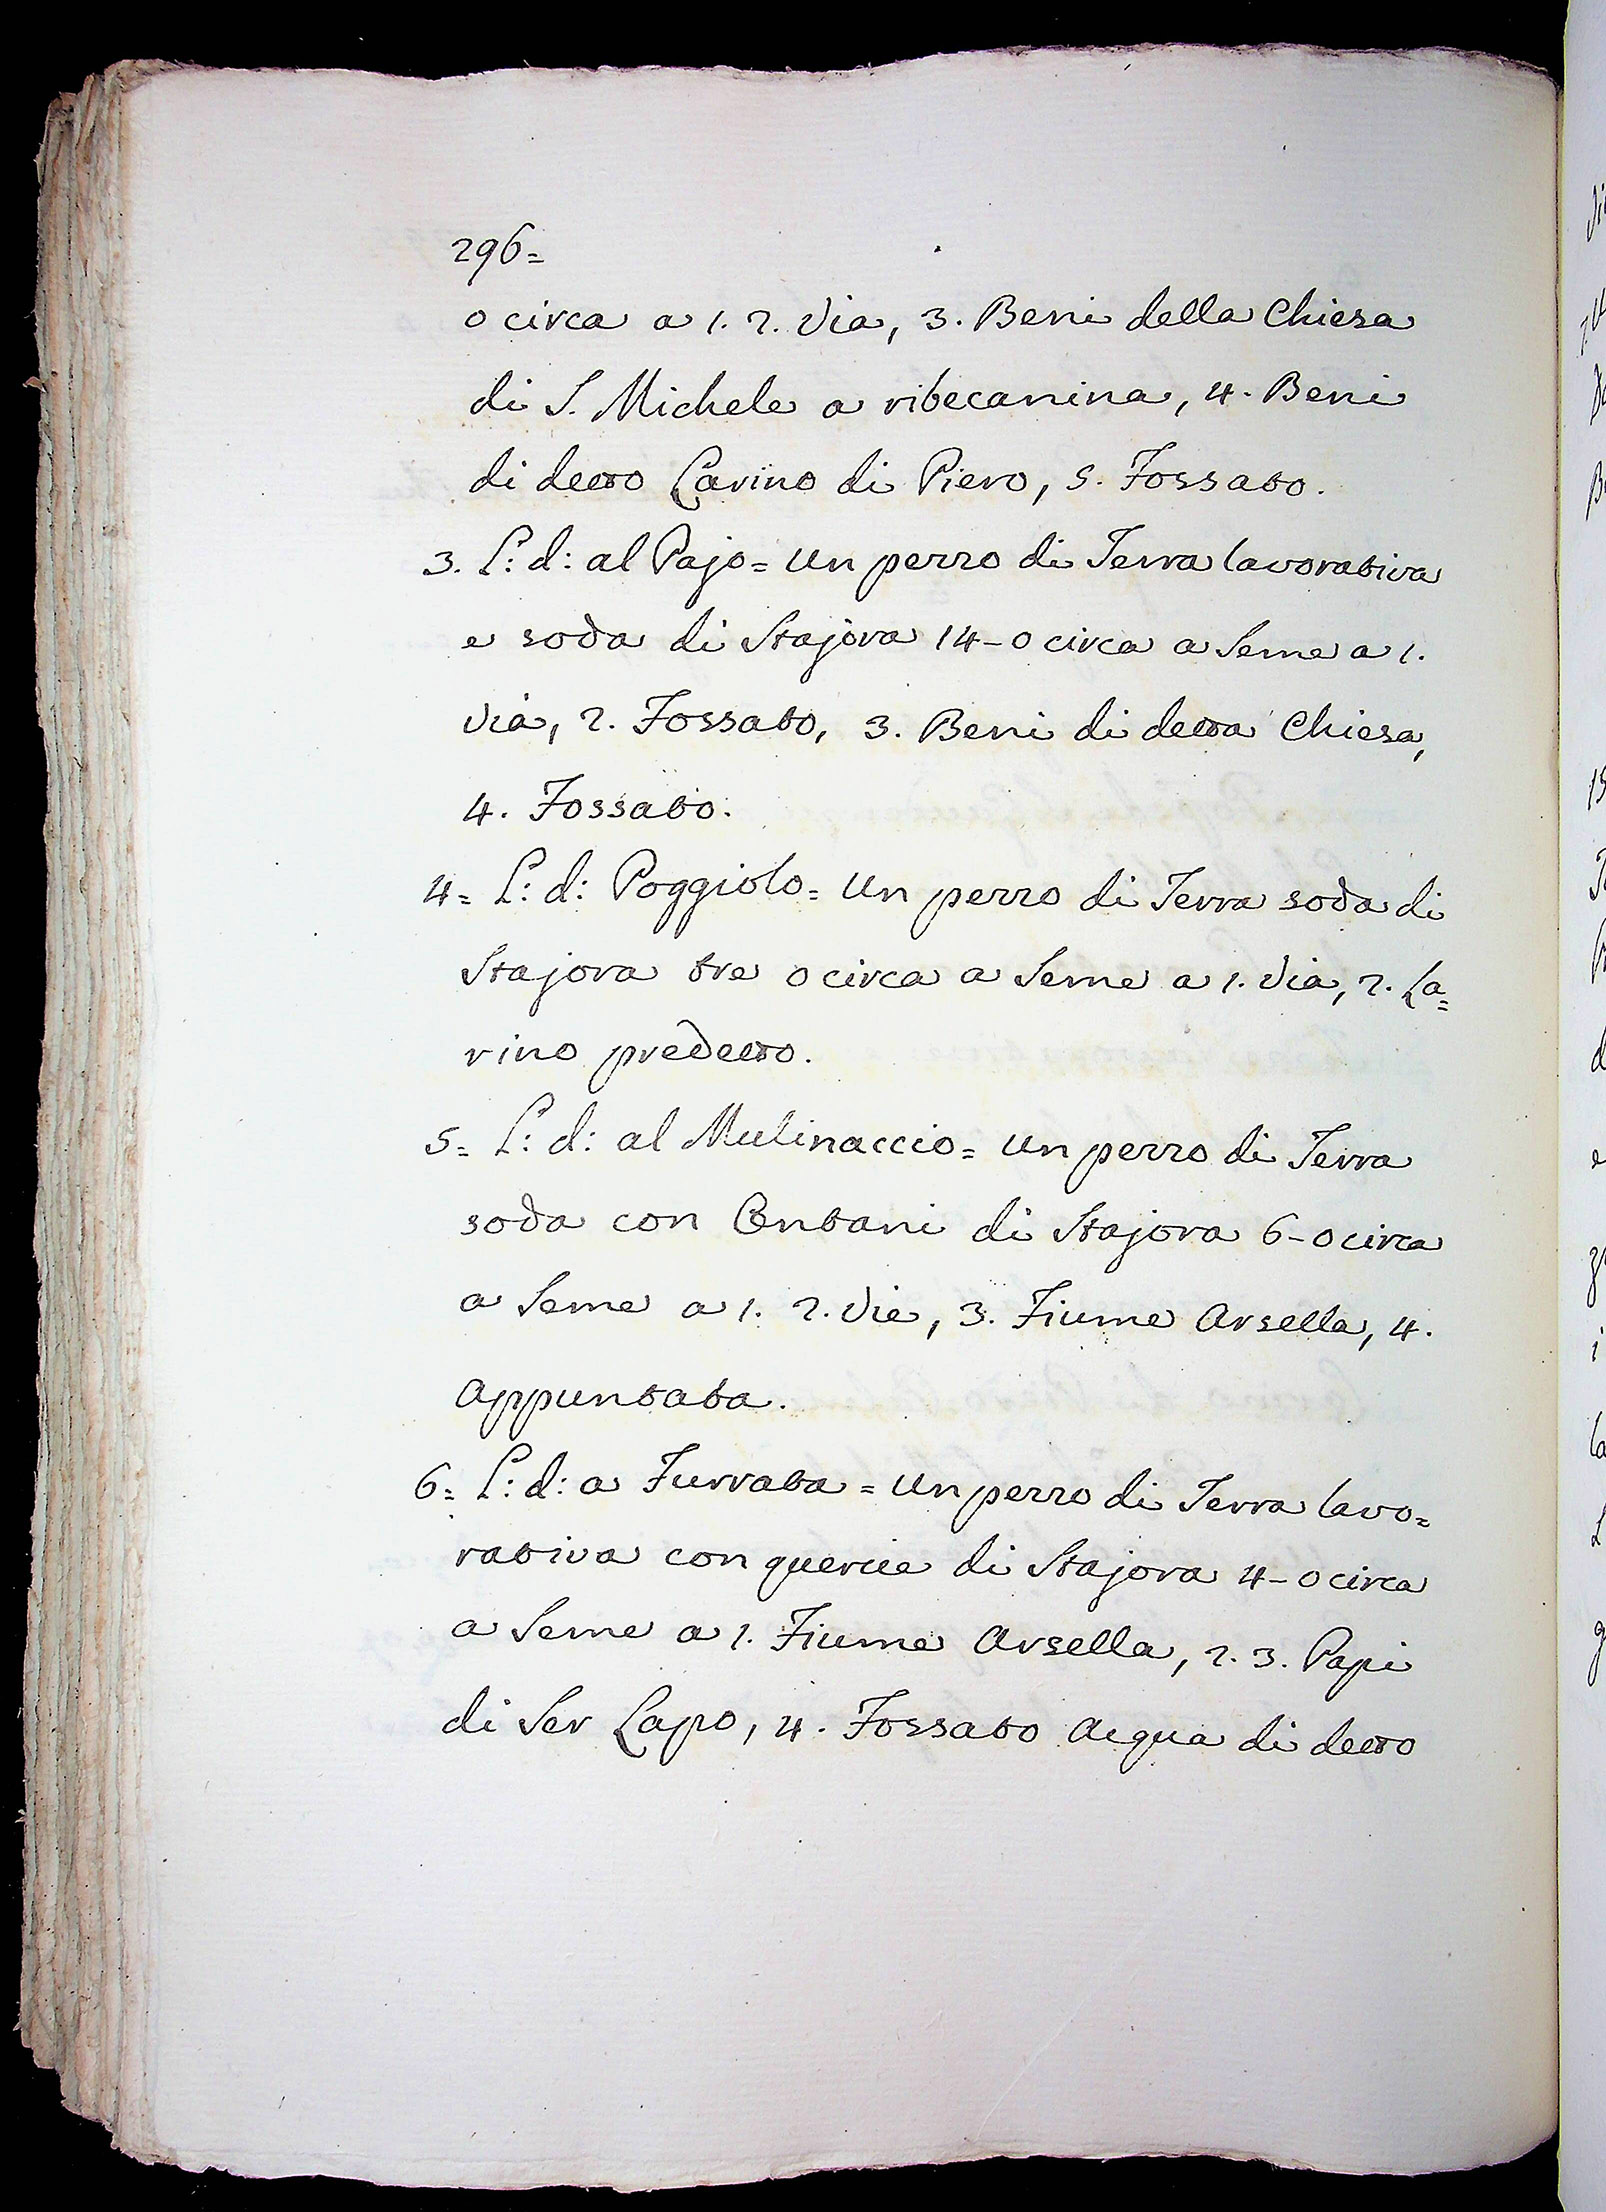 296=
o circa a 1. 2. Via, 3. Beni della Chiesa
di S. Michele a ribecanina, 4. Beni
di detto Larino di Piero, 5. Fossato.
3. L: d: al Pajo= Un pezzo di Terra lavorativa
e soda di Stajora 14-o circa a Seme a 1.
Via, 2. Fossato, 3. Beni di detta Chiesa,
4. Fossato.
4= L: d: Poggiolo= Un pezzo di Terra soda di
Stajora tre o circa a Seme a 1. Via, 2. La=
rino predetto.
5= L: d: al Mulinaccio= Un pezzo di Terra
soda con Ontani di Stajora 6-o circa
a Seme a 1. 2. Vie, 3. Fiume Arsella, 4.
Appuntata.
6= L: d: a Furrata= Un pezzo di Terra lavo=
rativa con quercie di Stajora 4-o circa
a Seme a 1. Fiume Arsella, 2. 3. Papi
di Ser Lapo, 4. Fossato Acqua di detto